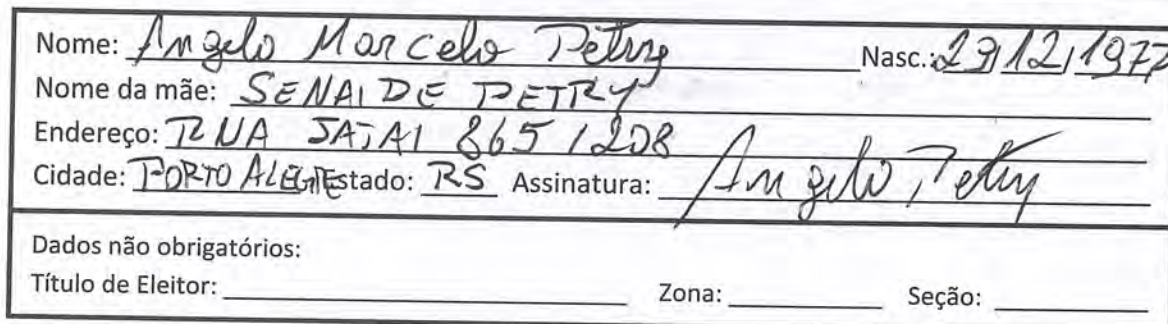 Nome: Angelo Marcelo Petry Nasc.: 29/12/1977
Nome da mãe: SENAIDE PETRY
Endereço: RUA JATAI 865 / 208
Cidade: PORTO ALEGRE Estado: RS Assinatura: Angelo Petry
Dados não obrigatórios:
Título de Eleitor: Zona: Seção: